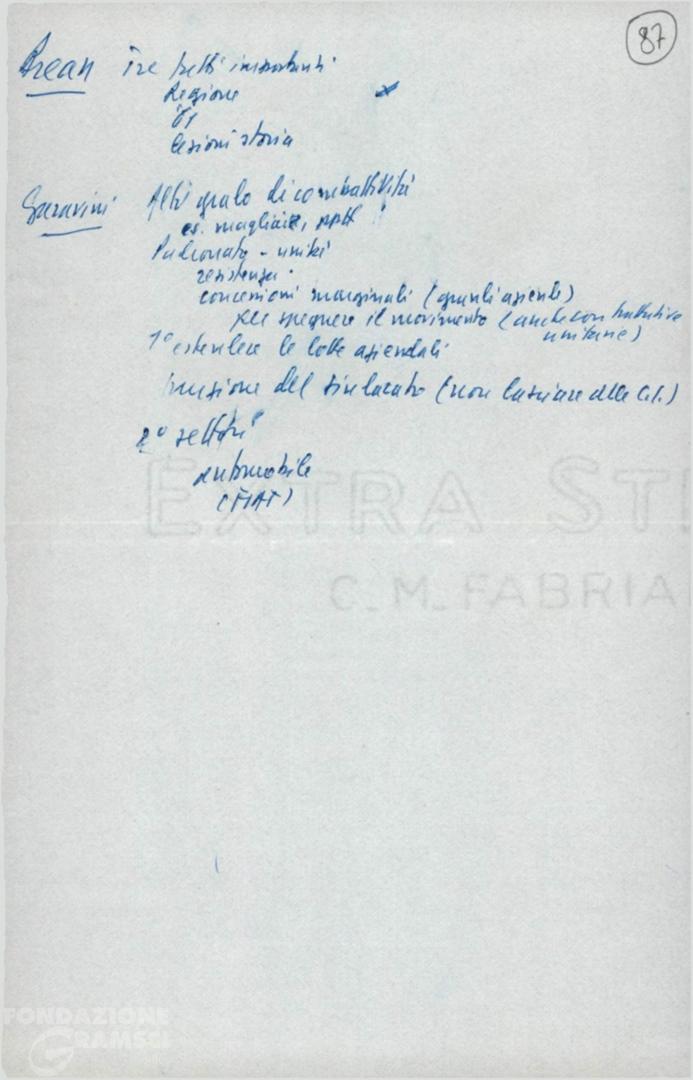 87
Tre fatti importanti
Regione
lezioni storia
Garavini Alto grado di combattività
es. magliaie,
Padronato - unità
resistenza
concessioni marginali (grandi aziende)
per spegnere il movimento (anche con trattative
unitarie)
1° estendere le lotte aziendali
funzione del sindacato (non lasciare alle C.I.)
2° settori
automobile
(FIAT)
EXTRA ST
C.M. FABRIA
FONDAZIONE
GRAMSCI